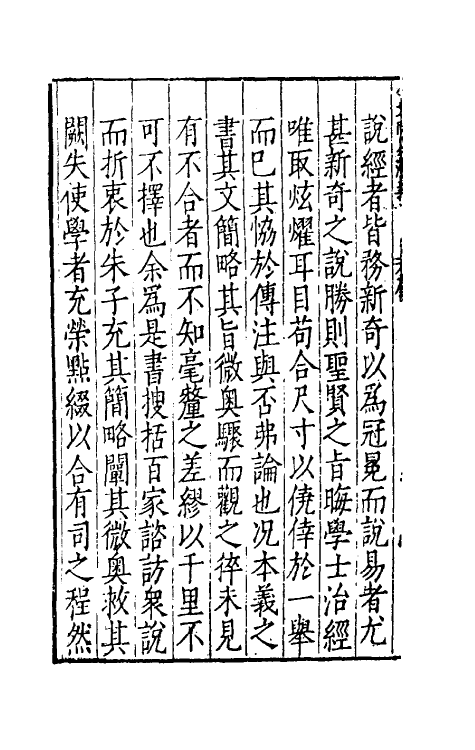 說經者皆務新奇以爲冠冕而說易者尤
甚新奇之說勝則聖賢之旨晦學士治經
唯取炫燿耳目苟合尺寸以僥倖於一舉
而已其恊於傳注與否弗論也况本義之
書其文簡略其旨微奥驟而觀之猝未見
有不合者而不知毫釐之差繆以千里不
可不擇也余爲是書搜括百家諮訪衆說
而折衷於朱子充其簡略闡其微奥救其
闕失使學者充榮點綴以合有司之程然